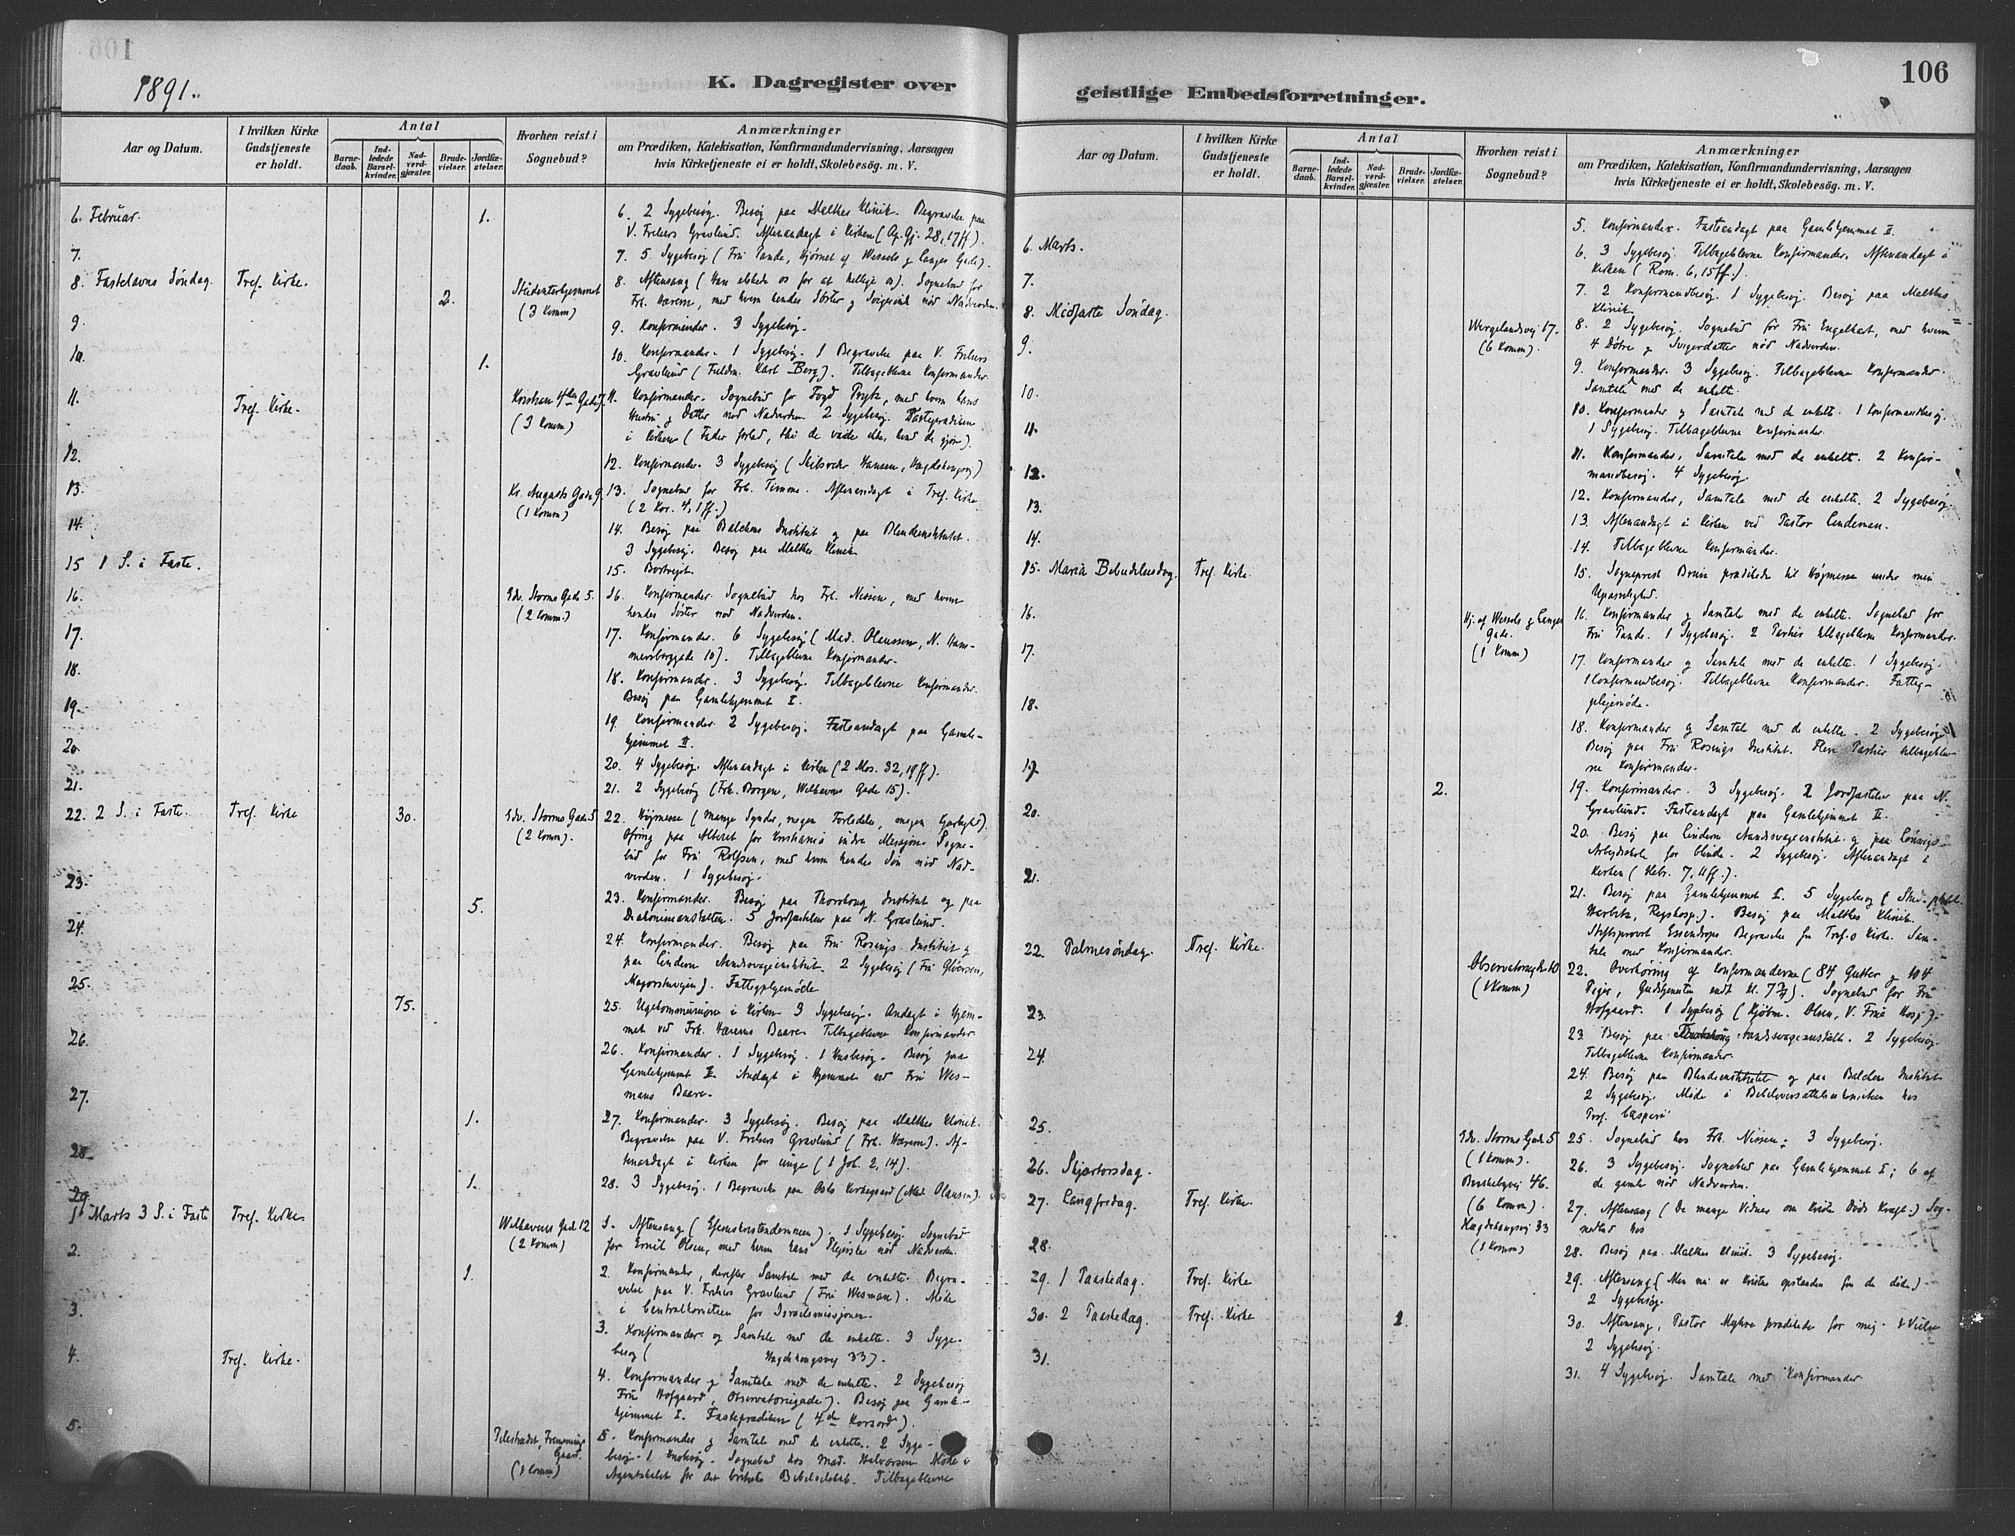 106
1891.
K. Dagregister over
geistlige Embedsforretninger.
Aar og Datum.
I hvilken Kirke Gudstjeneste er holdt.
Antal
Barnedaab.
Indledede Barselkvinder.
Nadverdgjæster.
Brudevielser.
Jordfæstelser.
Hvorhen reist i Sognebud?
Anmærkninger
om Prædiken, Katekisation, Konfirmandundervisning, Aarsagen
hvis Kirketjeneste ei er holdt, Skolebesøg. m. V.
6. Februar. 1. 6. 2 Sygebesøg. Besøg paa Malthes Klinik. Begravelse paa
V. Frelsers Gravlund. Aftenandagt i Kirken (Ap. Gj. 28, 17 ff).
7. 7. 5 Sygebesøg (Fru Tande, Hjørnet af Wessels g Langes Gade).
8. Fastelavns Søndag. Tref. Kirke. 2. Studenterhjemmet 8. Aftensang (Han elskede os for at hellige os). Sognebud for
(3 Komm) Frk. Hærem, med hvem hendes Søster g Svigerinde nød Nadverden.
9. 9. Konfirmander. 3 Sygebesøg.
10. 1. 10. Konfirmander. 1 Sygebesøg. 1 Begravelse paa V. Frelsers
Gravlund (Karl Berg). Tilbageblevne Konfirmander.
11. Tref. Kirke. 11. Konfirmander. Sognebud for Fogd Prytz, med hvem hans
(3 Komm) Hustru g Datter nød Nadverden. 2 Sygebesøg. Fasteprædiken
i Kirken (Fader forlad, thi de vide ikke, hvad de gjør).
12. 12. Konfirmander. 3 Sygebesøg (Hansen, )
13. Kr. Augusts Gade 9. 13. Sognebud for Frk. Timme. Aftenandagt i Tref. Kirke
(1 Komm) (2 Kor. 4, 1 ff.)
14. 14. Besøg paa Balchens Institut og paa Blindeinstitutet.
3 Sygebesøg. Besøg paa Malthes Klinik
15 1 S. i Faste. 15. Bortreist.
16. Edv. Storms Gade 5. 16. Konfirmander. Sognebud hos Frk. Nissen, med hvem
(2 Komm.) hendes Søster nød Nadverden.
17. 17. Konfirmander. 6 Sygebesøg (Mad. Olaussen, N. Ham-
mersborggade 10). Tilbageblevne Konfirmander.
18. 18. Konfirmander. 3 Sygebesøg. Tilbageblevne Konfirmander.
Besøg paa Gamlehjemmet I.
19. 19 Konfirmander. 2 Sygebesøg. Fasteandagt paa Gamle-
hjemmet II.
20. 20. 4 Sygebesøg. Aftenandagt i Kirken (2 Mos. 32, 19 ff).
21. 21. 2 Sygebesøg (Frk. Borgen, Welhavens Gade 15).
22. 2 S. i Faste. Tref. Kirke 30. Edv. Storms Gade 5 22. Høimesse (mange Synder, megen Forladelse, megen Kjærlighed).
(2 Komm). Ofring paa Alteret for Kristiania indre Mission. Sogne-
bud for Fru Rolfsen, med hvem hendes Søn nød Nad-
verden. 1 Sygebesøg.
23. 5. 23. Konfirmander. Besøg paa Institut og paa
Diakonianstalten. 5 Jordfæstelser paa N. Gravlund.
24. 24. Konfirmander. Besøg paa Fru Rosings Institut g
paa Lindern Aandssvageinstitut. 2 Sygebesøg (Fru
). Fattigpleiemøde
25. 75. 25. Ugekommunion i Kirken. 3 Sygebesøg. Andagt i Hjem-
met ved Frk. Hærems Baare. Tilbageblevne Konfirmander
26. 26. Konfirmander. 1 Sygebesøg. 1 Husbesøg. Besøg paa
Gamlehjemmet II. Andagt i Hjemmet ved Fru Wes-
mans Baare.
27. 1. 27. Konfirmander. 3 Sygebesøg. Besøg paa Malthes Klinik.
Begravelse paa V. Frelsers Gravlund (Frk. Hærem). Af-
tenandagt i Kirken for unge (1 Joh. 2, 14).
28. 1. 28. 3 Sygebesøg. 1 Begravelse paa Oslo Kirkegaard (Mad. Olaussen).
1 Marts 3 S. i Faste Tref. Kirke. Welhavens Gade 12 1. Aftensang. 1 Sygebesøg. Sognebud
(2 Komm) for Emil Olsen, med hvem hans Pleierske nød Nadverden.
2. 1. 2. Konfirmander, derefter Samtale med de enkelte. Begra-
velse paa V. Frelsers Gravlund (Fru Wesman). Møde
i Centralkomiteen for Israelsmissjonen.
3. 3. Konfirmander og Samtale med de enkelte. 3 Syge-
besøg ( Hægdehaugsvej 33).
4. Tref. Kirke. 4. Konfirmander g Samtale med de enkelte. 2 Sygebesøg
Fru Hofgaard, Observatoriegade). Besøg paa Gamle-
hjemmet I. Fasteprædiken (4de Korsord).
5. 5. Konfirmander g Samtale med de enkelte. 2 Syge-
besøg. 1 Husbesøg. Sognebud hos Mad. Halvorsen. Møde i
(1 Komm) Agentskabet for det britiske Bibelselskab. Tilbageblevne
106
Aar og Datum.
I hvilken Kirke Gudstjeneste er holdt.
Antal
Barnedaab.
Indledede Barselkvinder.
Nadverdgjæster.
Brudevielser.
Jordfæstelser.
Hvorhen reist i Sognebud?
Anmærkninger
om Prædiken, Katekisation, Konfirmandundervisning, Aarsagen
hvis Kirketjeneste ei er holdt, Skolebesøg. m. V.
5. Konfirmander. Fasteandagt paa Gamlehjemmet II.
6. Marts. 6. 3 Sygebesøg. Tilbageblevne Konfirmander. Aftenandagt i
Kirken (Rom. 6, 15 ff.).
7. 7. 2 Konfirmandbesøg. 1 Sygebesøg. Besøg paa Malthes
Klinik.
8. Midfaste Søndag. Wergelandsvej 17. 8. 2 Sygebesøg. Sognebud for Fru Engelhart, med hvem
(6 Komm). 4 Døtre g Svigerdatter nød Nadverden.
9. 9. Konfirmander. 3 Sygebesøg. Tilbageblevne Konfirmander.
Samtale med de enkelte.
10. 10. Konfirmander g Samtale med de enkelte. 1 Konfirmandbesøg.
1 Sygebesøg. Tilbageblevne Konfirmander.
11. 11. Konfirmander, Samtale med de enkelte. 2 Konfir-
mandbesøg. 4 Sygebesøg
12. 12. Konfirmander, Samtale med de enkelte. 2 Sygebesøg.
13. 13. Aftenandagt i Kirken ved Pastor Lindeman.
14. 14. Tilbageblevne Konfirmander.
15. Maria Bebudelsesdag. Tref. Kirke. 15. Sogneprest Bruun prædikede til Høimesse under min
Upasselighed.
16. Hj. af Wessels g Langes 16. Konfirmander g Samtale med de enkelte. Sognebud for
Gade. Fru Tande. 1 Sygebesøg. 2 Partier tilbageblevne Konfirmander.
(1 Komm)
17. 17. Konfirmander g Samtale med de enkelte. 1 Sygebesøg.
1 Konfirmandbesøg. Tilbageblevne Konfirmander. Fattig-
pleiemøde.
18. 18. Konfirmander g Samtale med de enkelte. 2 Sygebesøg
Besøg paa Fru Rosings Institut. Flere Partier tilbageblev-
ne Konfirmander.
19. 2. 19. Konfirmander. 3 Sygebesøg. 2 Jordfæstelser paa N.
Gravlund. Fasteandagt paa Gamlehjemmet II.
20. 20. Besøg paa Linderns Aandssvageinstitut og paa
Arbejdsskole for blinde. 2 Sygebesøg. Aftenandagt i
Kirken (Hebr. 7, 11 ff.).
21. 21. Besøg paa Gamlehjemmet I. 5 Sygebesøg (Stud.
Rigshosp.). Besøg paa Malthes Klinik.
Stiftsprovst Essendrops Begravelse fra Tref. Kirke. Sam-
tale med Konfirmander.
22. Palmesøndag. Tref. Kirke. Observatoriegade 10 22. Overhøring af Konfirmanderne (84 Gutter g 104
(1 Komm) Piger, Gudstjenesten endt Kl. 7½). Sognebud for Fru
Hofgaard. 1 Sygebesøg (Kjøbm. Olsen, V. Frue Hosp.).
23. 23. Besøg paa Aandssvageanstalt. 2 Sygebesøg.
Tilbageblevne Konfirmander
24. 24. Besøg paa Blindeinstitutet og paa Balchens Institut
2 Sygebesøg. Møde i Bibeloversættelseskomiteen hos
Prof. Caspari
25. Edv. Storms Gade 5 25. Sognebud hos Frk. Nissen. 3 Sygebesøg.
(1 Komm).
26. Skjærtorsdag. 46. 26. 3 Sygebesøg. Sognebud paa Gamlehjemmet I; 6 af
(6 Komm). de gamle nød Nadverden.
27. Langfredag. Tref. Kirke. Hægdehaugsvej 33 27. Aftensang (De mange Vidner om Kristi Døds Kraft.) Sog-
(1 Komm) nebud hos
28. 28. Besøg paa Malthes Klinik. 3 Sygebesøg.
29. 1 Paaskedag. Tref. Kirke 29. Aftensang (Men nu er Kristus opstanden fra de døde).
2 Sygebesøg.
30. 2 Paaskedag. Tref. Kirke 1 30. Aftensang, Pastor Myhre prædikede for mig. 1 Vielse
2 Sygebesøg.
31. 31. 4 Sygebesøg. Samtale med Konfirmander